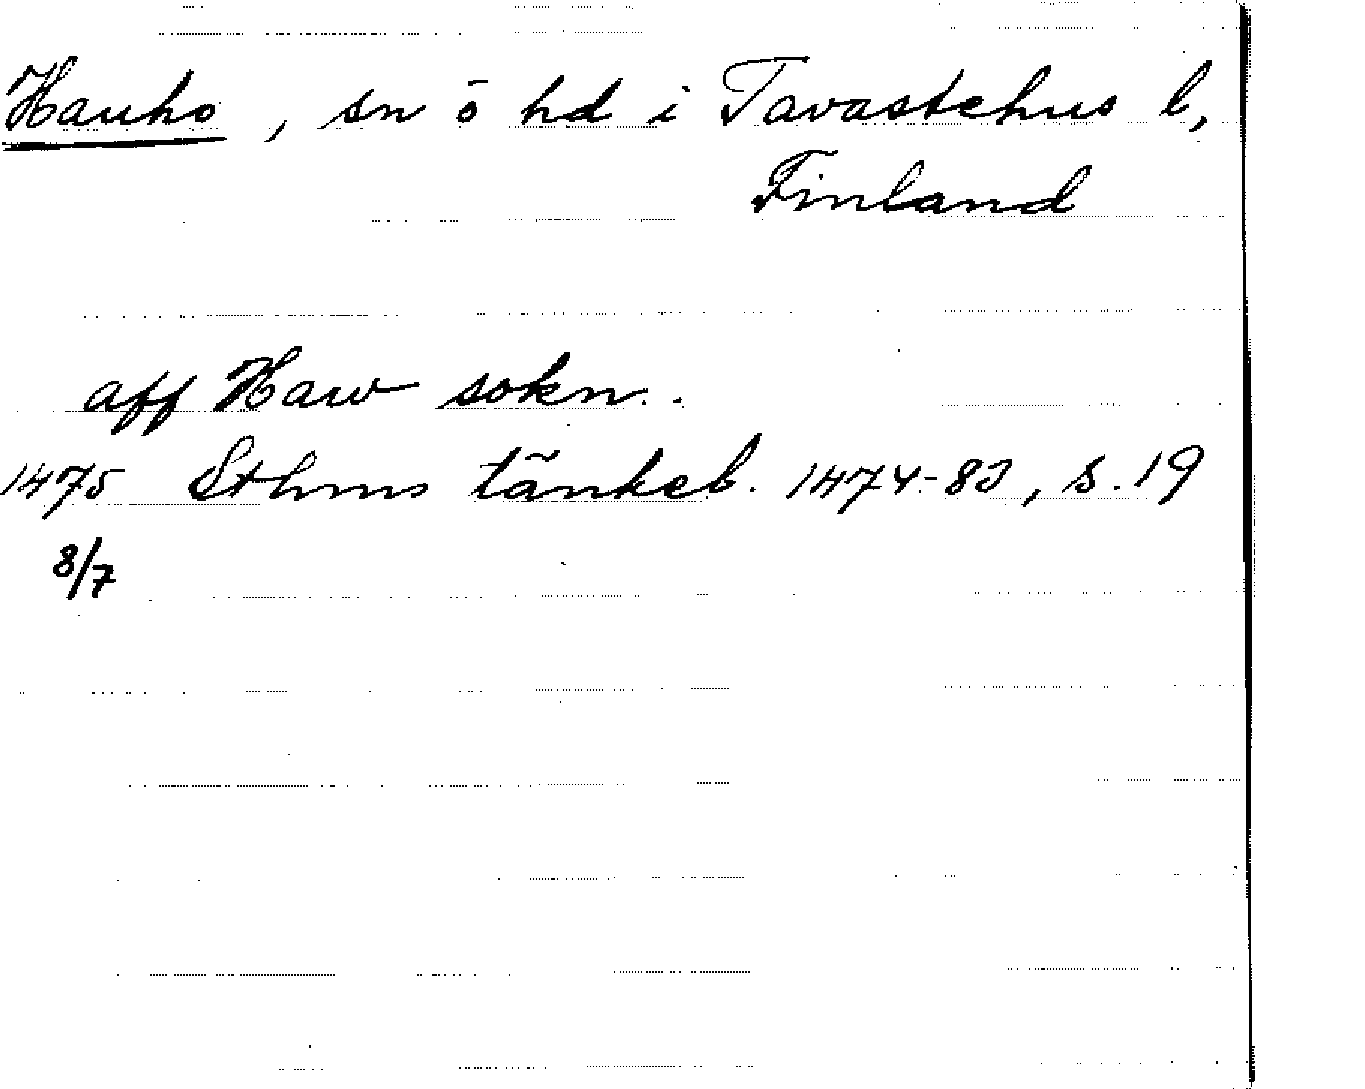 Hauho, sn ö hd i Tavastehus l,
Finland
aff Haw sokn..
1475 Sthms tänkeb. 1474-83, s. 19
8/7